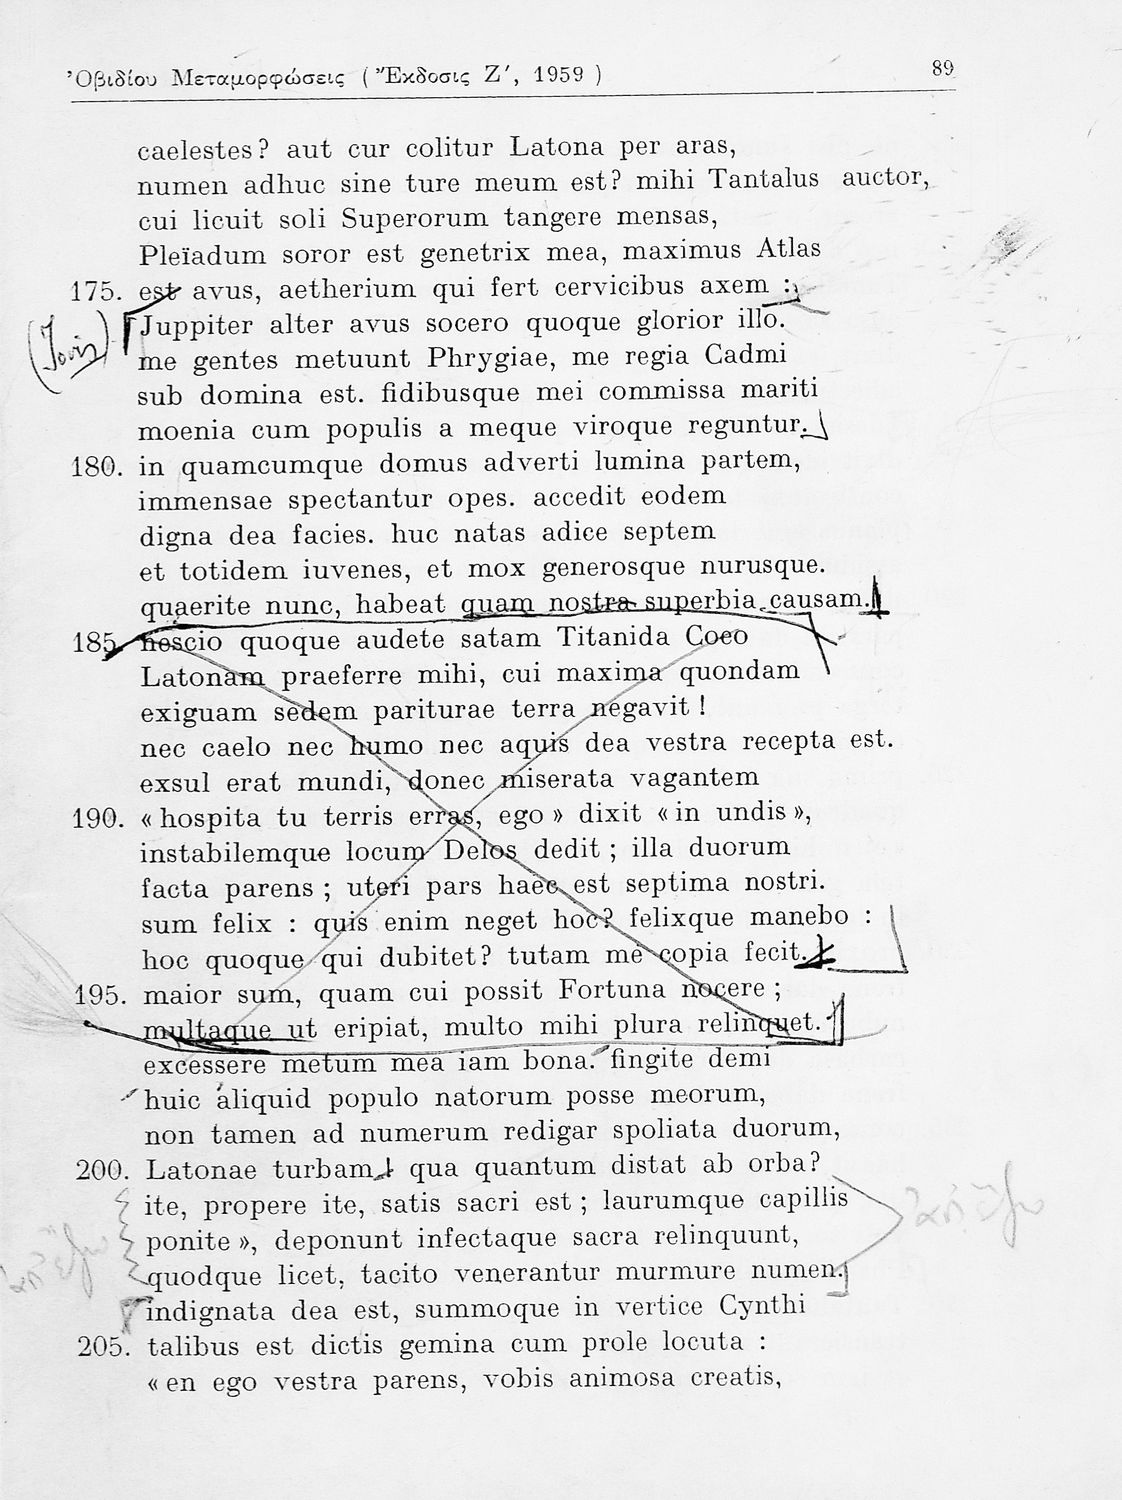 Ὀβιδίου Μεταμορφώσεις ( Ἔκδοσις Ζ′, 1959 ) 89
caelestes? aut cur colitur Latona per aras,
numen adhuc sine ture meum est? mihi Tantalus auctor,
cui licuit soli Superorum tangere mensas,
Pleïadum soror est genetrix mea, maximus Atlas
175. est avus, aetherium qui fert cervicibus axem :
(Jovis) Juppiter alter avus socero quoque glorior illo.
me gentes metuunt Phrygiae, me regia Cadmi
sub domina est. fidibusque mei commissa mariti
moenia cum populis a meque viroque reguntur.
180. in quamcumque domus adverti lumina partem,
immensae spectantur opes. accedit eodem
digna dea facies. huc natas adice septem
et totidem iuvenes, et mox generosque nurusque.
quaerite nunc, habeat quam nostra superbia causam.
185. nescio quoque audete satam Titanida Coeo
Latonam praeferre mihi, cui maxima quondam
exiguam sedem pariturae terra negavit !
nec caelo nec humo nec aquis dea vestra recepta est.
exsul erat mundi, donec miserata vagantem
190. « hospita tu terris erras, ego » dixit « in undis »,
instabilemque locum Delos dedit ; illa duorum
facta parens ; uteri pars haec est septima nostri.
sum felix : quis enim neget hoc? felixque manebo :
hoc quoque qui dubitet? tutam me copia fecit.
195. maior sum, quam cui possit Fortuna nocere ;
multaque ut eripiat, multo mihi plura relinquet.
excessere metum mea iam bona. fingite demi
huic aliquid populo natorum posse meorum,
non tamen ad numerum redigar spoliata duorum,
200. Latonae turbam, qua quantum distat ab orba?
ite, propere ite, satis sacri est ; laurumque capillis
ponite », deponunt infectaque sacra relinquunt,
quodque licet, tacito venerantur murmure numen.
indignata dea est, summoque in vertice Cynthi
205. talibus est dictis gemina cum prole locuta :
« en ego vestra parens, vobis animosa creatis,